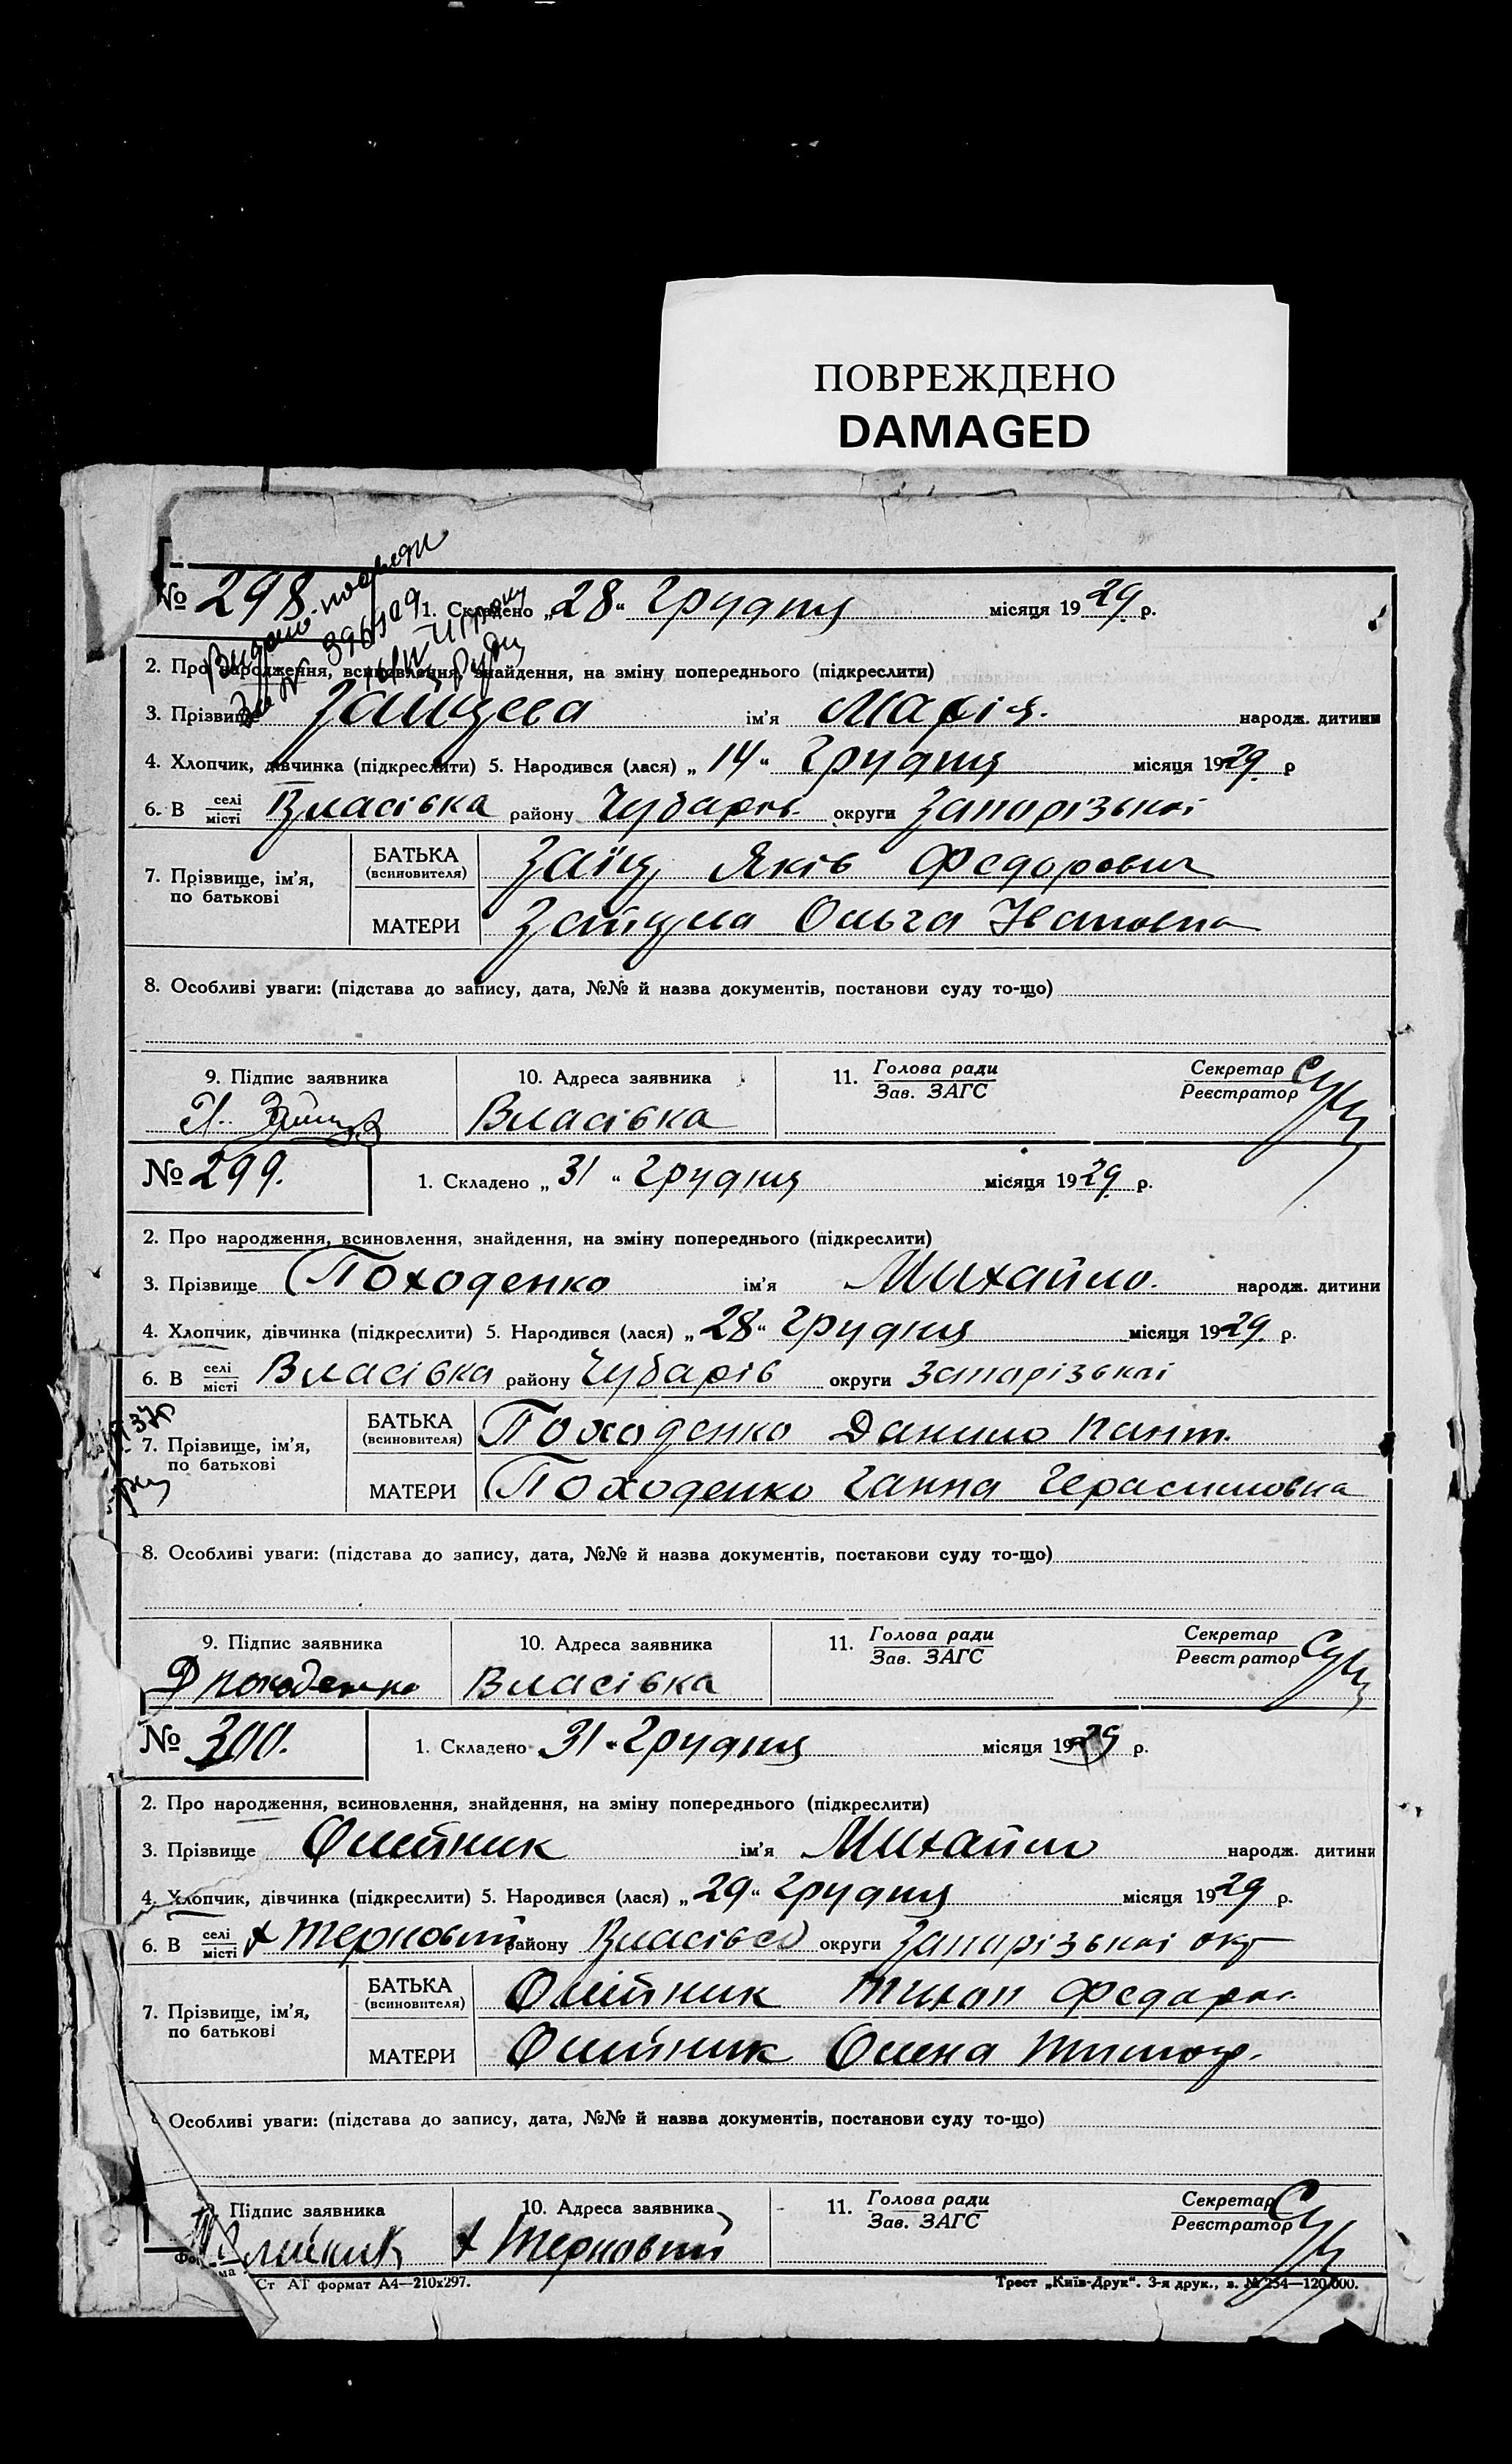 ПОВРЕЖДЕНО
DAMAGED
№ 298. 1. Складено „28“ Грудня місяця 1929 р.
Видано
за №
2. Про народження, всиновлення, знайдення, на зміну попереднього (підкреслити)
3. Прізвище Зайцева ім'я Марія. народж. дитини
4. Хлопчик, дівчинка (підкреслити) 5. Народився (лася) „14“ Грудня місяця 1929 р
6. В селі/місті Власівка району Чубарів. округи Запорізької
7. Прізвище, ім'я, по батькові
БАТЬКА (всиновителя) Заїц Яків Федорович
МАТЕРИ Зайцева Ольга Івановна
8. Особливі уваги: (підстава до запису, дата, №№ й назва документів, постанови суду то-що)
9. Підпис заявника 10. Адреса заявника 11. Голова ради/Зав. ЗАГС Секретар/Реєстратор
Власівка
№ 299. 1. Складено „31“ Грудня місяця 1929 р.
2. Про народження, всиновлення, знайдення, на зміну попереднього (підкреслити)
3. Прізвище Походенко ім'я Михайло. народж. дитини
4. Хлопчик, дівчинка (підкреслити) 5. Народився (лася) „28“ Грудня місяця 1929 р.
6. В селі/місті Власівка району Чубарів округи Запорізької
7. Прізвище, ім'я, по батькові
БАТЬКА (всиновителя) Походенко Данило Пант.
МАТЕРИ Походенко Ганна Герасимовна
8. Особливі уваги: (підстава до запису, дата, №№ й назва документів, постанови суду то-що)
9. Підпис заявника 10. Адреса заявника 11. Голова ради/Зав. ЗАГС Секретар/Реєстратор
Д Походенко Власівка
№ 300. 1. Складено 31 “ Грудня місяця 1929 р.
2. Про народження, всиновлення, знайдення, на зміну попереднього (підкреслити)
3. Прізвище Олійник ім'я Михайло народж. дитини
4. Хлопчик, дівчинка (підкреслити) 5. Народився (лася) „29“ Грудня місяця 1929 р.
6. В селі/місті х Терновий району округи Запорізької окр
7. Прізвище, ім'я, по батькові
БАТЬКА (всиновителя) Олійник Тихон Федоров.
МАТЕРИ Олійник Олена Тимоф.
Особливі уваги: (підстава до запису, дата, №№ й назва документів, постанови суду то-що)
Підпис заявника 10. Адреса заявника 11. Голова ради/Зав. ЗАГС Секретар/Реєстратор
Олійник х Терновий
Ст АТ формат А4—210х297. Трест „Київ-Друк“. 3-я друк., з. № 254—120.000.